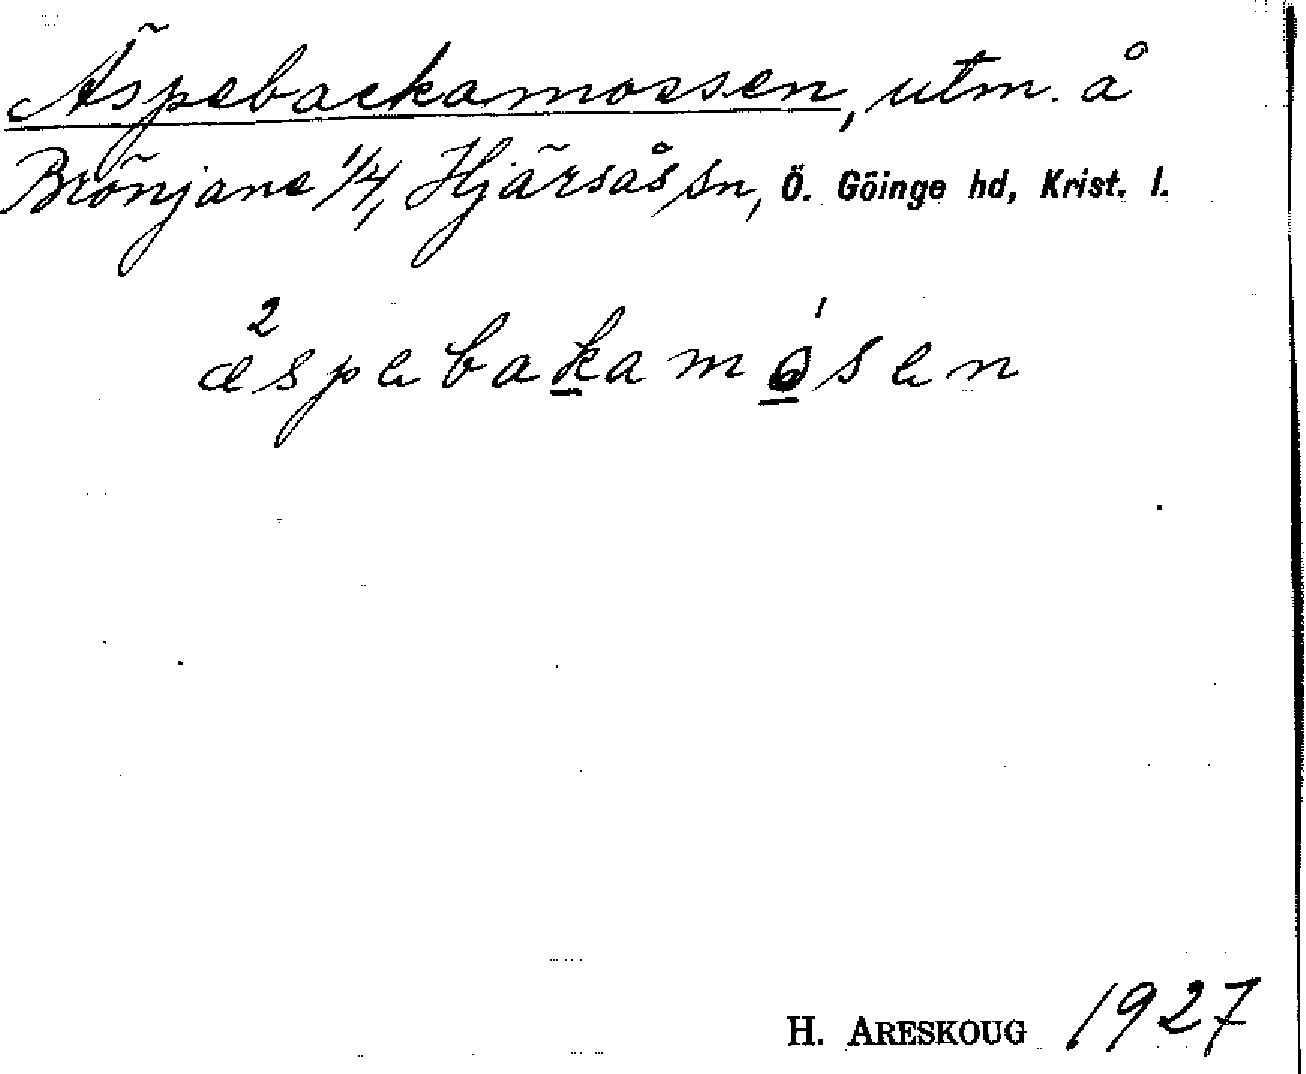 Äspebackamossen, utm. å
Brönjane 1/4, Hjärsås sn, Ö. Göinge hd, Krist. l.
æ²spebakamó¹sen
H. ARESKOUG 1927